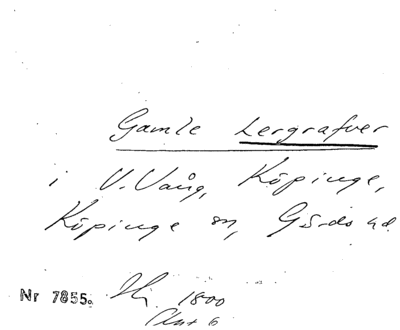 Gamle Lergrafver
i V. Vång, Köpinge,
Köpinge sn, Gärds hd.
Nr 7855.
1800